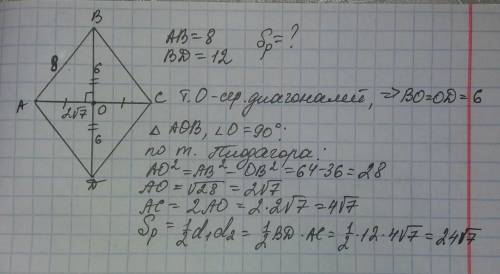 B
AB=8
BD=12
Sр=?
8
6
A
2√7
O
C
6
D
т.О-сер.диагоналей, ⇒BO=OD=6
△ AOB, ∠O=90°:
по т. Пифагора:
AO²=AB²-OB²=64-36=28
AO=√28=2√7
AC=2AO=2·2√7=4√7
Sр=½d₁d₂=½BD·AC=½·12·4√7=24√7